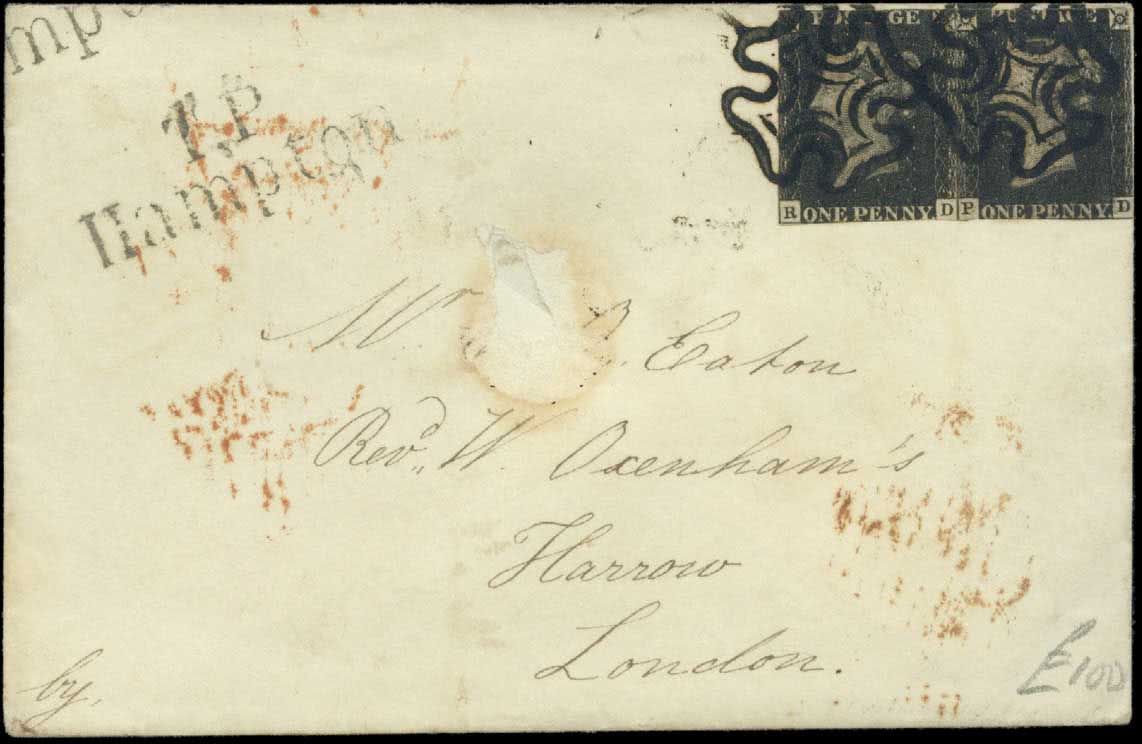 mp
T.P
Hampton
POSTAGE POSTAGE
R ONE PENNY. D P ONE PENNY. D
Mr Eaton
Revd. W. Oxenham's
Harrow
London.
by.
£100